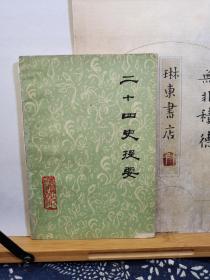 二十四史提要
琳東書店
無非種德